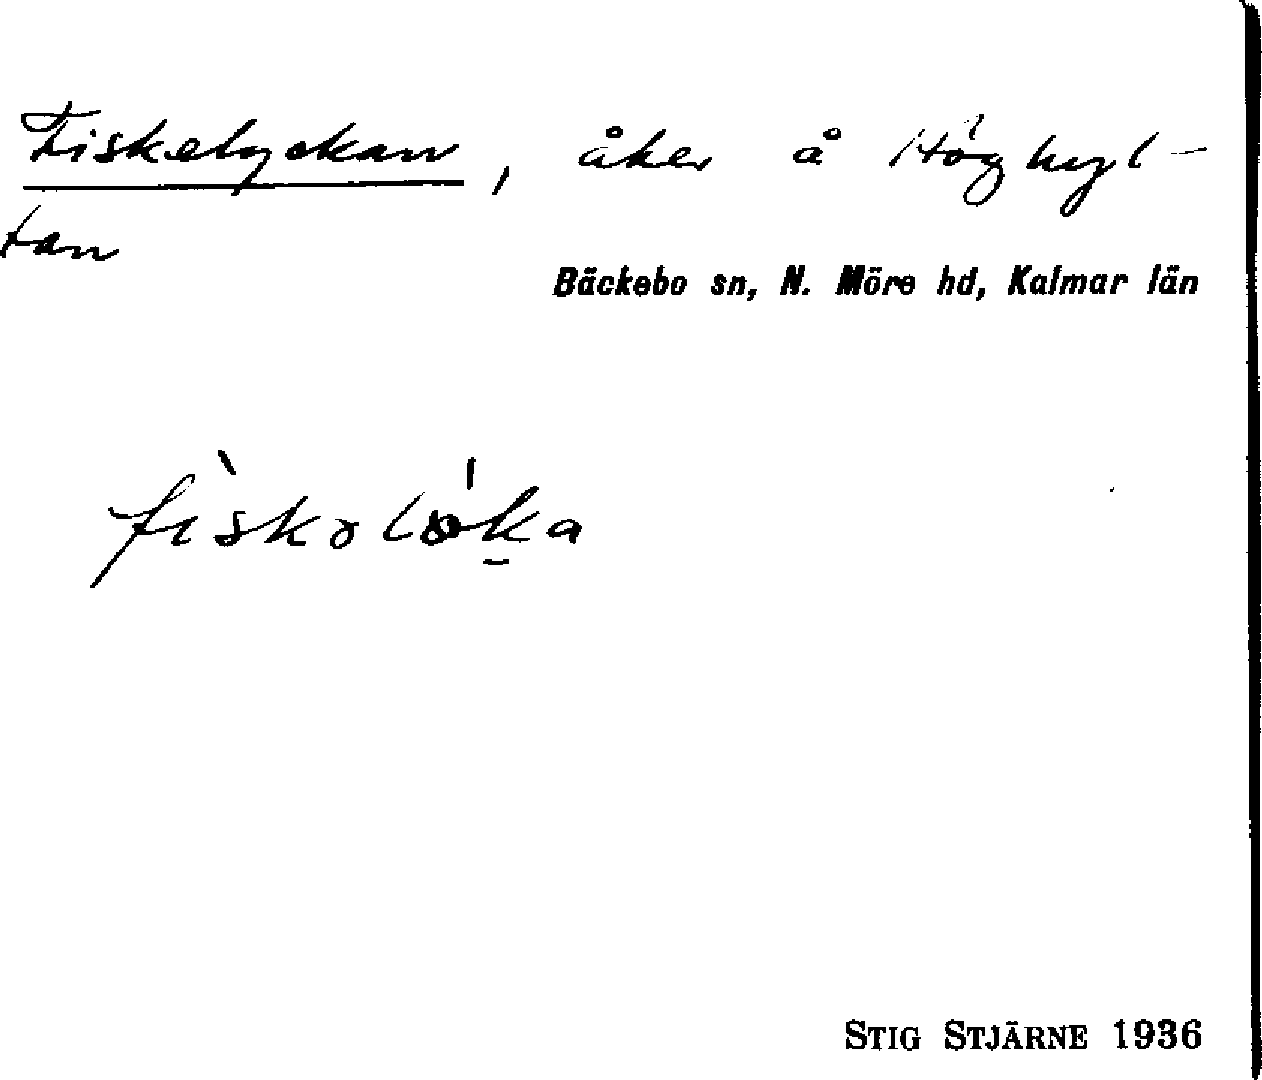 Fiskelyckan, åker å Höghyl-
tan
Bäckebo sn, N. Möre hd, Kalmar län
STIG STJÄRNE 1936